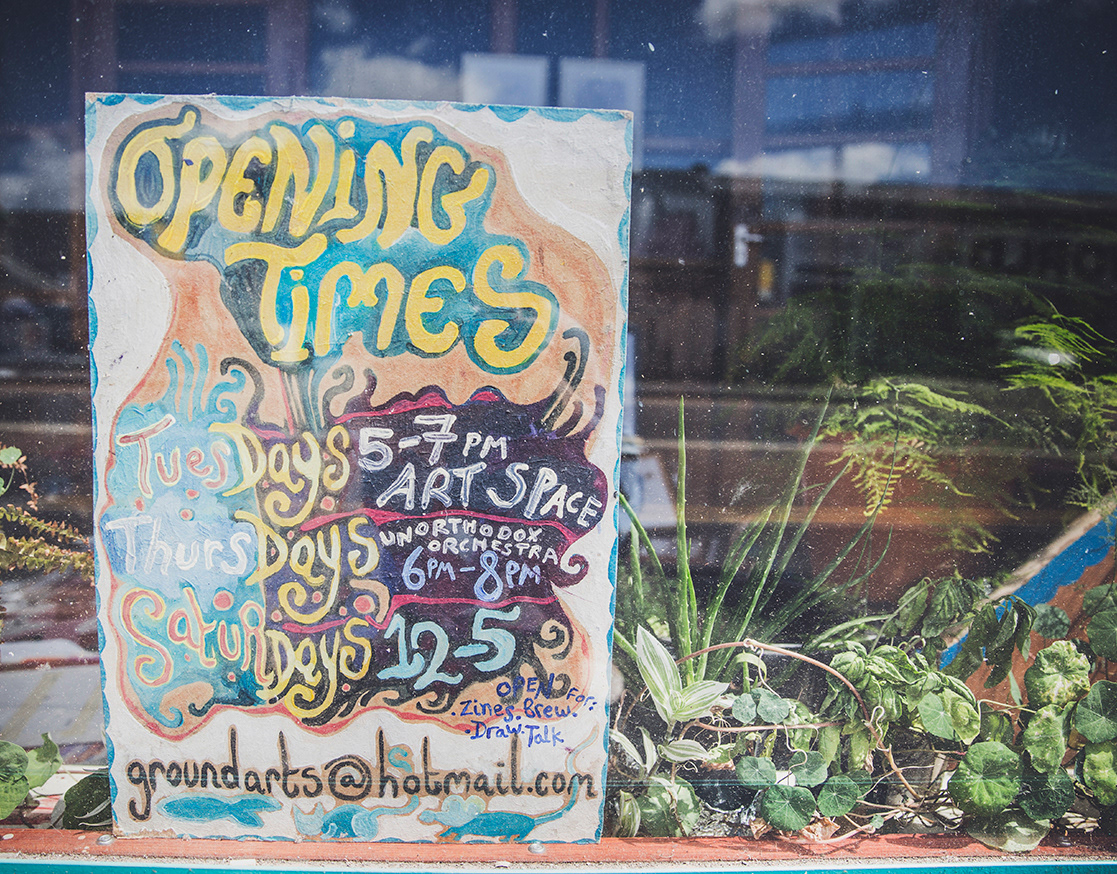 OPENiNG
TiMES
TuesDays 5-7PM
ART SPACE
ThursDays UNORTHODOX
ORCHESTRA
6PM-8PM
SaturDays 12-5
OPEN FOR:
.Zines.Brew.
.Draw.Talk
groundarts@hotmail.com